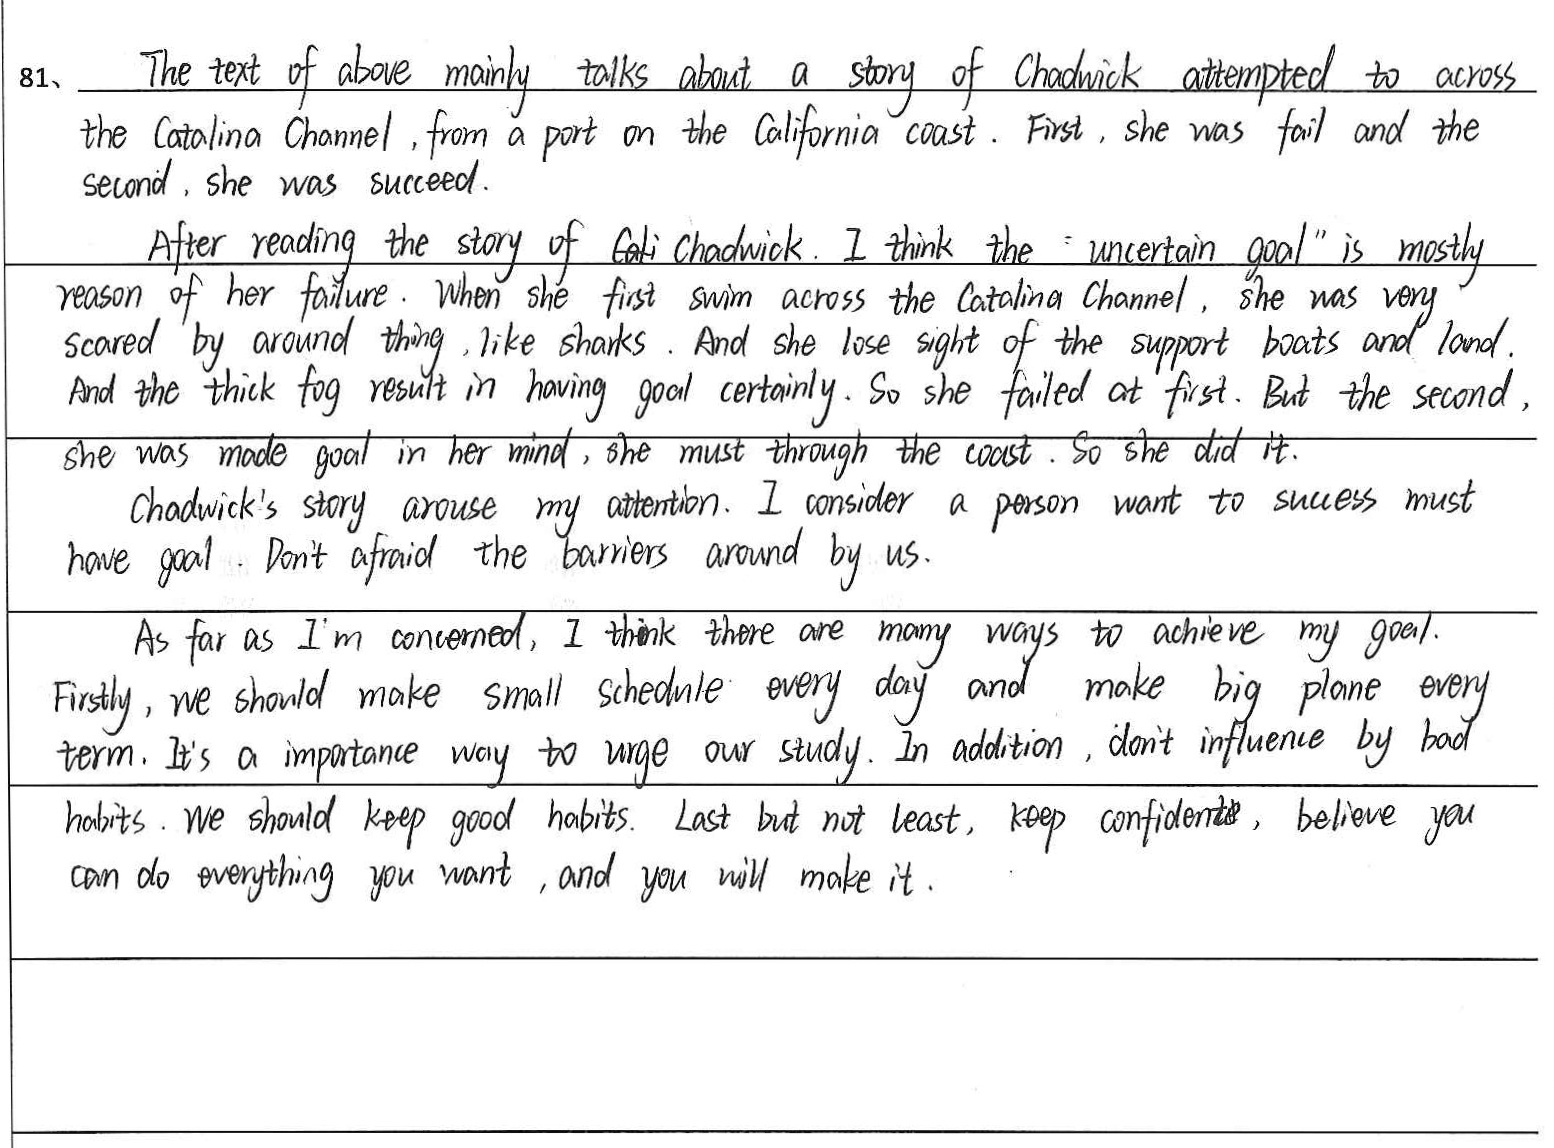 81、 The text of above mainly talks about a story of Chadwick attempted to across
the Catalina Channel, from a port on the California coast. First, she was fail and the
second, she was succeed.
After reading the story of Chadwick. I think the "uncertain goal" is mostly
reason of her failure. When she first swim across the Catalina Channel, she was very
scared by around thing, like sharks. And she lose sight of the support boats and land.
And the thick fog result in having goal certainly. So she failed at first. But the second,
she was made goal in her mind, she must through the coast. So she did it.
Chadwick's story arouse my attention. I consider a person want to success must
have goal. Don't afraid the barriers around by us.
As far as I'm concerned, I think there are many ways to achieve my goal.
Firstly, we should make small schedule every day and make big plane every
term. It's a importance way to urge our study. In addition, don't influence by bad
habits. We should keep good habits. Last but not least, keep confident, believe you
can do everything you want, and you will make it.